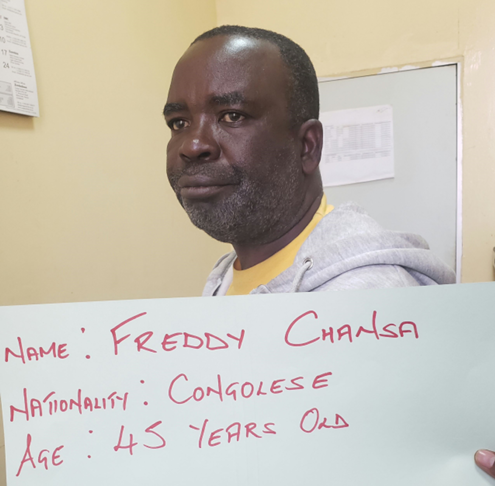 NAME: FREDDY CHANSA
NATIONALITY: CONGOLESE
AGE: 45 YEARS OLD
17
24